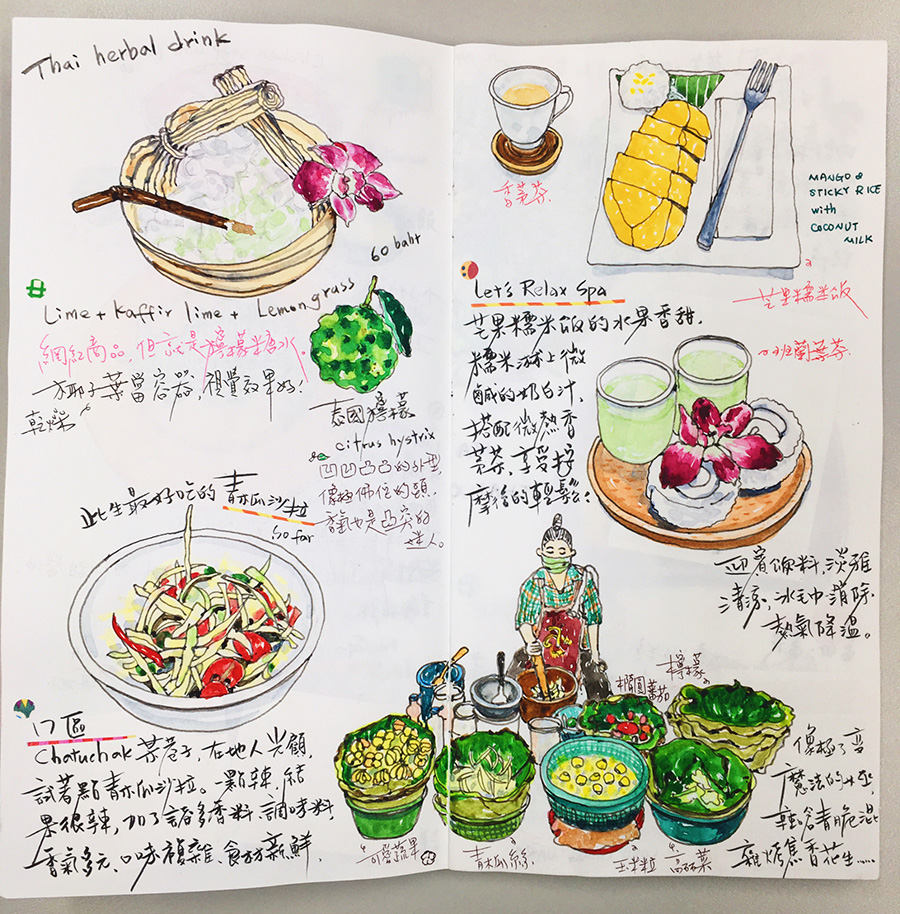 Thai herbal drink
60 baht
Lime + Kaffir lime + Lemongrass
網紅商品,但就是檸檬糖水。
乾燥椰子葉當容器,視覺效果好!
泰國檸檬
citrus hystrix
凹凹凸凸的外型
像極佛陀的頭,
香氣也是凸突的
迷人。
此生最好吃的青木瓜沙拉
So far
17區
Chatuchak 某巷子,在地人光顧,
試著點青木瓜沙拉。點辣,結
果很辣,加了諸多香料、調味料,
香氣多元、口味複雜、食材新鮮
香茅茶
MANGO &
STICKY RICE
with
COCONUT
MILK
芒果糯米飯
Let's Relax Spa
芒果糯米飯的水果香甜,
糯米淋上微
鹹的奶白汁,
搭配微熱香
茅茶,享受按
摩後的輕鬆!
班蘭葉茶
迎賓飲料,淡雅
清涼,冰毛巾消除
熱氣降溫。
檸檬
橢圓蕃茄
可愛蔬果
青木瓜絲
玉米粒
高麗菜
像極了variable
魔法的